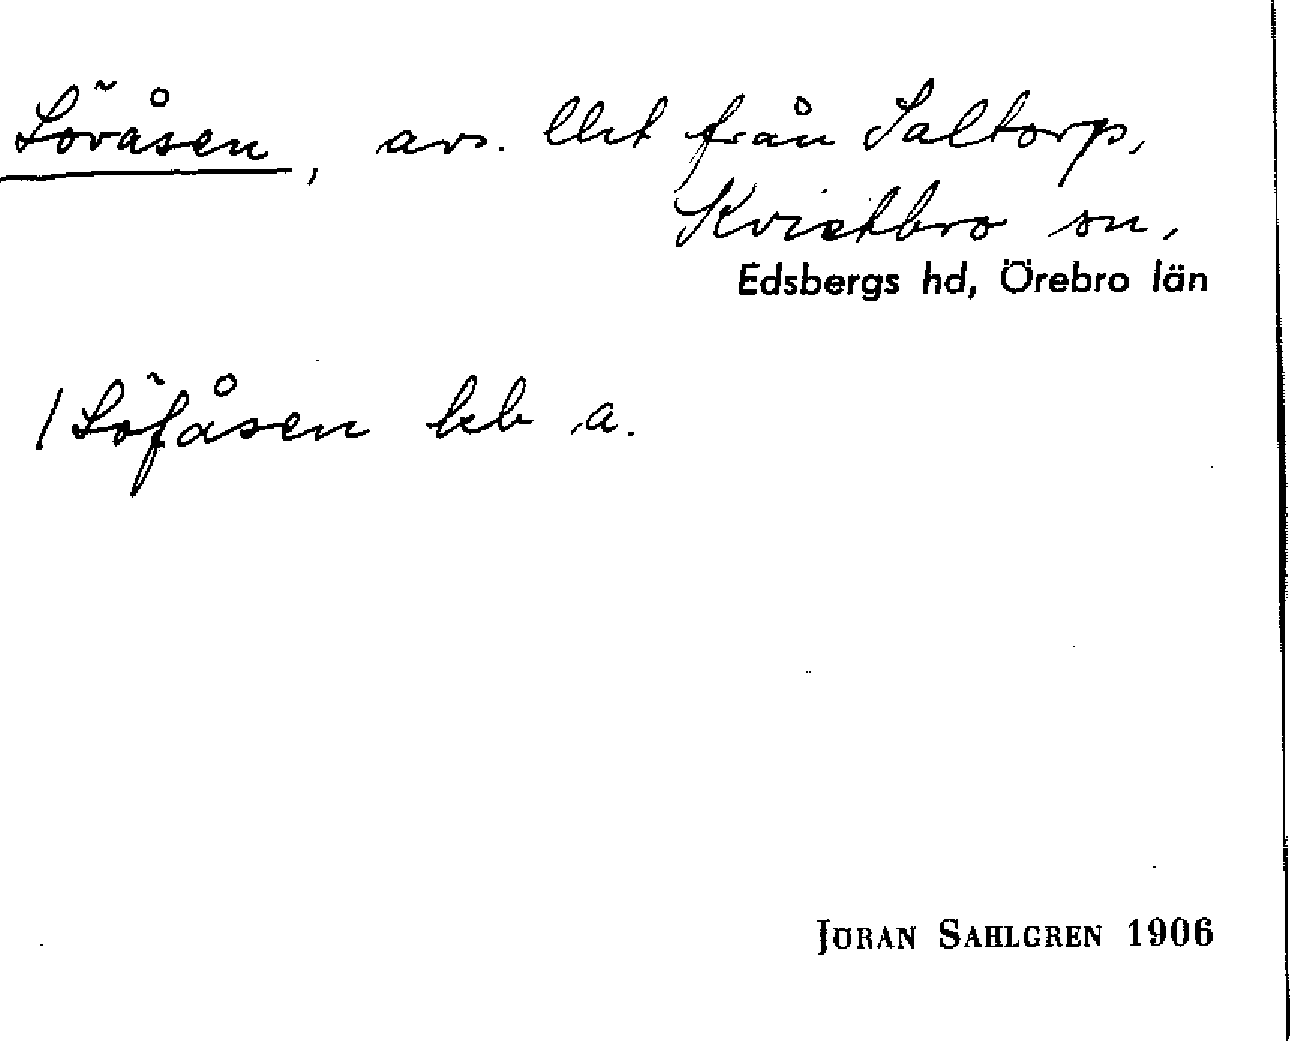 Lövåsen, avs. lht från Saltorp,
Kvistbro sn,
Edsbergs hd, Örebro län
/ Löfåsen kb a.
JÖRAN SAHLGREN 1906